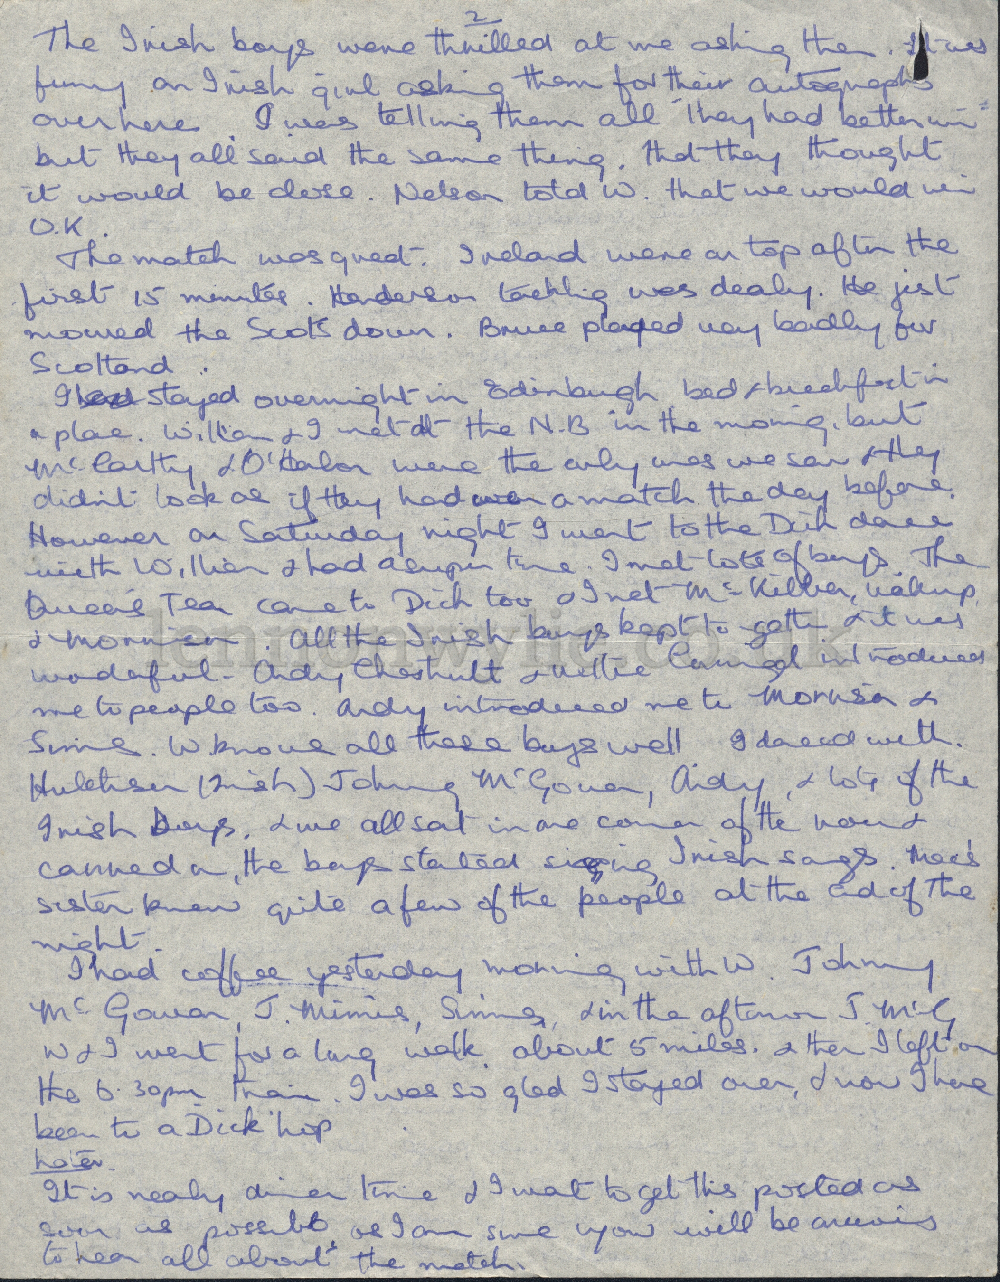 2
The Irish boys were thrilled at me asking them. It was
funny an Irish girl asking them for their autographs
over here. I was telling them all "they had better win"
but they all said the same thing, that they thought
it would be close. Nelson told W. that we would win
O.K.
The match was great. Ireland were on top after the
first 15 minutes. Henderson tackling was deadly. He just
mowed the Scots down. Bruce played very badly for
Scotland.
I stayed overnight in Edinburgh bed & breakfast in
a place. William & I met at the N.B in the morning, but
McCarthy & O'Hanlon were the only ones we saw & they
didn't look as if they had won a match the day before.
However on Saturday night I went to the Dick dance
with William & had a super time. I met lots of boys. The
Queen's Team came to Dick too & I met McKibben,
& Morrison. All the Irish boys kept to gether & it was
wonderful - Andy Chesnutt & introduced
me to people too. Andy introduced me to Morrison &
Simms. W knows all these boys well I danced with.
Hutchison (Irish) Johnny McGowan, Andy, & lots of the
Irish boys, & we all sat in one corner of the room &
carried on, the boys started singing Irish songs. Mac's
sister knew quite a few of the people at the end of the
night.
I had coffee yesterday morning with W. Johnny
McGowan, J. Mimis, Simms, & in the afternoon J. McG
W & I went for a long walk about 5 miles. & then I left on
the 6.30pm train. I was so glad I stayed over, & now I have
been to a Dick 'hop
Later.
It is nearly dinner time & I want to get this posted as
soon as possible as I am sure you will be anxious
to hear all about the match.
lennonwylie.co.uk